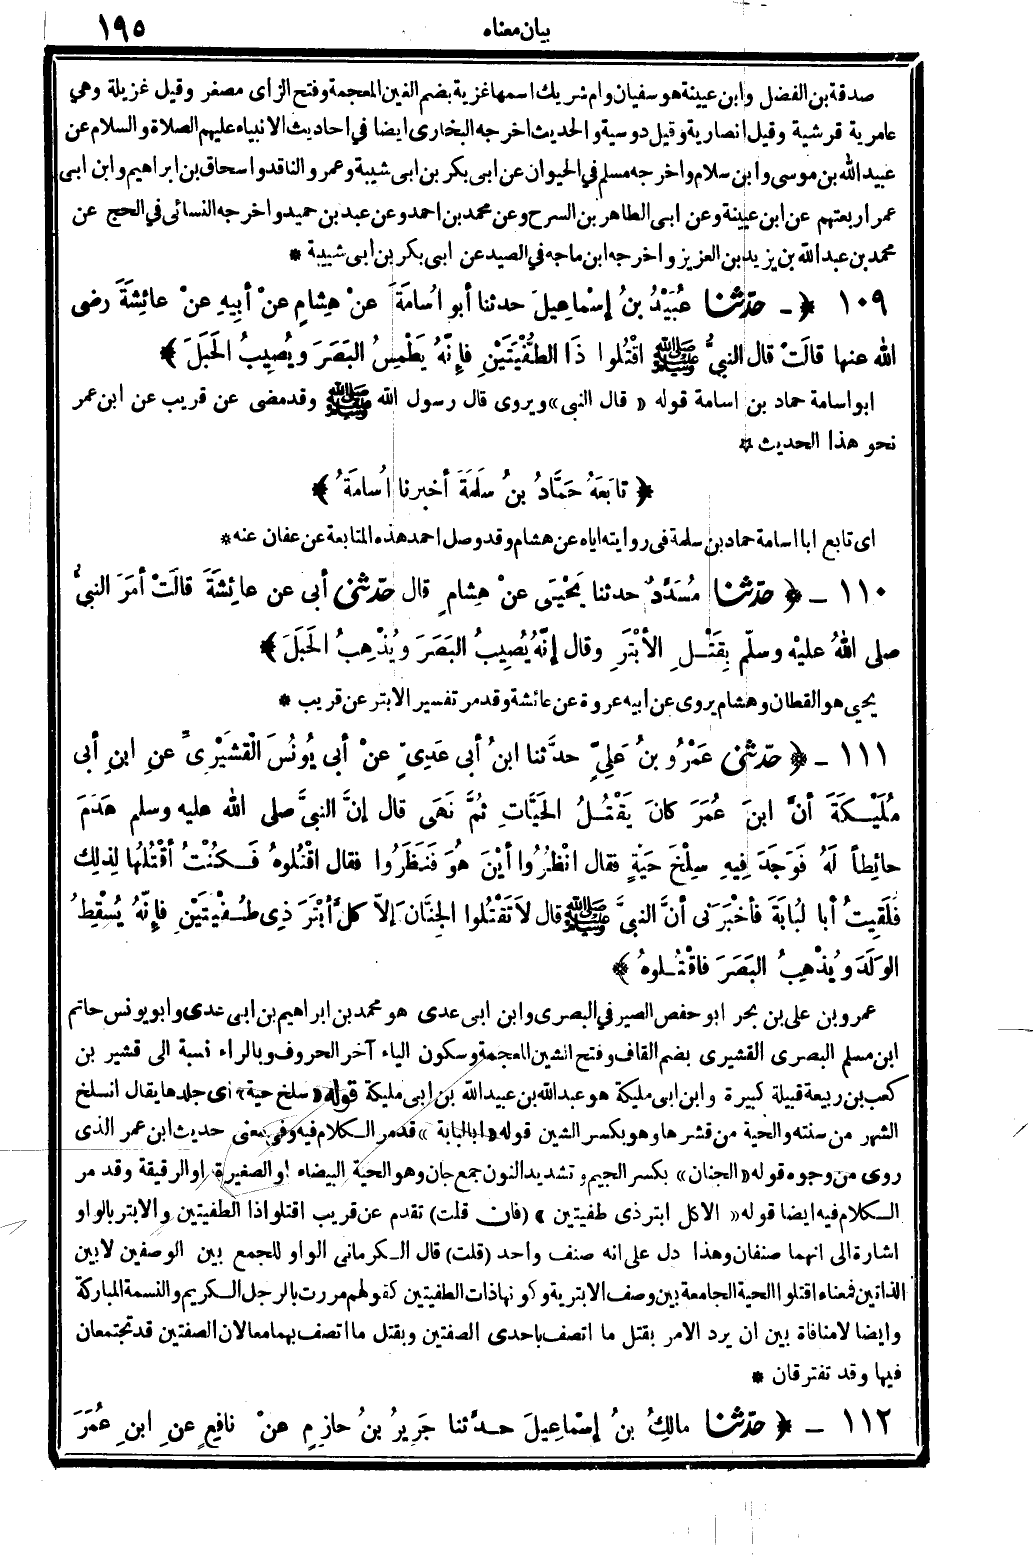 بيان معناه ١٩٥
صدقة بن الفضل وابن عيينة هو سفيان وام شريك اسمها غزية بضم الغين المعجمة وفتح الزاى مصغر وقيل غزيلة وهي
عامرية قرشية وقيل انصارية وقيل دوسية والحديث اخرجه البخارى ايضا في احاديث الانبياء عليهم الصلاة والسلام عن
عبيد الله بن موسى وابن سلام واخرجه مسلم في الحيوان عن ابى بكر بن ابى شيبة وعمرو الناقد واسحاق بن ابراهيم وابن ابى
عمر اربعتهم عن ابن عيينة وعن ابى الطاهر بن السرح وعن محمد بن احمد وعن عبد بن حميد واخرجه النسائى في الحج عن
محمد بن عبد الله بن يزيد بن العزيز واخرجه ابن ماجه في الصيد عن ابى بكر بن ابى شيبة *
١٠٩ ﴿ ـ حَدَّثَنَا عُبَيْدُ بنُ إسْمَاعِيلَ حدثنا أبو اُسَامَةَ عنْ هِشَامٍ عنْ أبِيهِ عنْ عائِشَةَ رضى
الله عنها قالَتْ قال النبيُّ ﷺ اقْتُلُوا ذَا الطُّفْيَتَيْنِ فإنَّهُ يَطْمِسُ البَصَرَ ويُصِيبُ الحَبَلَ ﴾
ابو اسامة حماد بن اسامة قوله « قال النبى » ويروى قال رسول الله ﷺ وقدمضى عن قريب عن ابن عمر
نحو هذا الحديث *
﴿ تابَعَهُ حَمَّادُ بنُ سَلَمَةَ أخبرنا اُسامَةُ ﴾
اى تابع ابا اسامة حماد بن سلمة فى روايته اياه عن هشام وقد وصل احمد هذه المتابعة عن عفان عنه *
١١٠ ـ ﴿ حَدَّثَنَا مُسَدَّدٌ حدثنا يَحْيَى عنْ هِشَامٍ قال حَدَّثَنِي أبى عن عائِشَةَ قالَتْ أمَرَ النبيُّ
صلى اللهُ عليْه وسلَّم بِقَتْلِ الأبْتَرِ وقال إنَّهُ يُصِيبُ البَصَرَ ويُذْهِبُ الحَبَلَ ﴾
يحيى هو القطان وهشام يروى عن ابيه عروة عن عائشة وقد مر تفسير الابتر عن قريب *
١١١ ـ ﴿ حَدَّثَنِي عَمْرُو بنُ عَلِيٍّ حدَّثنا ابنُ أبى عَدِيٍّ عنْ أبى يُونُسَ القُشَيْرِىِّ عنِ ابنِ أبى
مُلَيْكَةَ أنَّ ابنَ عُمَرَ كانَ يَقْتُلُ الحَيَّاتِ ثُمَّ نَهَى قال إنَّ النبيَّ صلى الله عليه وسلم هَدَمَ
حائِطاً لَهُ فَوَجَدَ فِيهِ سِلْخَ حَيَّةٍ فقال انْظُرُوا أيْنَ هُوَ فَنَظَرُوا فقال اقْتُلُوهُ فَكُنْتُ أقْتُلُها لِذلِكَ
فَلَقِيتُ أبا لُبَابَةَ فأخْبَرَنى أنَّ النبيَّ ﷺ قال لاَ تَقْتُلُوا الجِنَّانَ إلاَّ كلَّ أبْتَرَ ذِى طُفْيَتَيْنِ فإنَّهُ يُسْقِطُ
الوَلَدَ ويُذْهِبُ البَصَرَ فاقْتُلوهُ ﴾
عمرو بن على بن بحر ابو حفص الصيرفي البصرى وابن ابى عدى هو محمد بن ابراهيم بن ابى عدى وابو يونس حاتم
ابن مسلم البصرى القشيرى بضم القاف وفتح الشين المعجمة وسكون الياء آخر الحروف وبالراء نسبة الى قشير بن
كعب بن ربيعة قبيلة كبيرة وابن ابى مليكة هو عبدالله بن عبيدالله بن ابى مليكة قوله « سلخ حية » اى جلدها يقال انسلخ
الشهر من سنته والحية من قشرها وهو بكسر الشين قوله « ابالبابة » قدمر الكلام فيه وفي معنى حديث ابن عمر الذى
روى من وجوه قوله « الجنان » بكسر الجيم وتشديد النون جمع جان وهو الحية البيضاء او الصغيرة او الرقيقة وقد مر
الكلام فيه ايضا قوله « الا كل ابتر ذى طفيتين » (فان قلت) تقدم عن قريب اقتلوا ذا الطفيتين والابتر بالواو
اشارة الى انهما صنفان وهذا دل على انه صنف واحد (قلت) قال الكرمانى الواو للجمع بين الوصفين لا بين
الذاتين فمعناه اقتلوا الحية الجامعة بين وصف الابترية وكونها ذات الطفيتين كقولهم مررت بالرجل الكريم والنسمة المباركة
وايضا لا منافاة بين ان يرد الامر بقتل ما اتصف باحدى الصفتين وبقتل ما اتصف بهما معا لان الصفتين قد تجتمعان
فيها وقد تفترقان *
١١٢ ـ ﴿ حَدَّثَنَا مالِكُ بنُ إسْمَاعِيلَ حدَّثنا جَرِيرُ بنُ حازِمٍ عنْ نافِعٍ عنِ ابنِ عُمَرَ